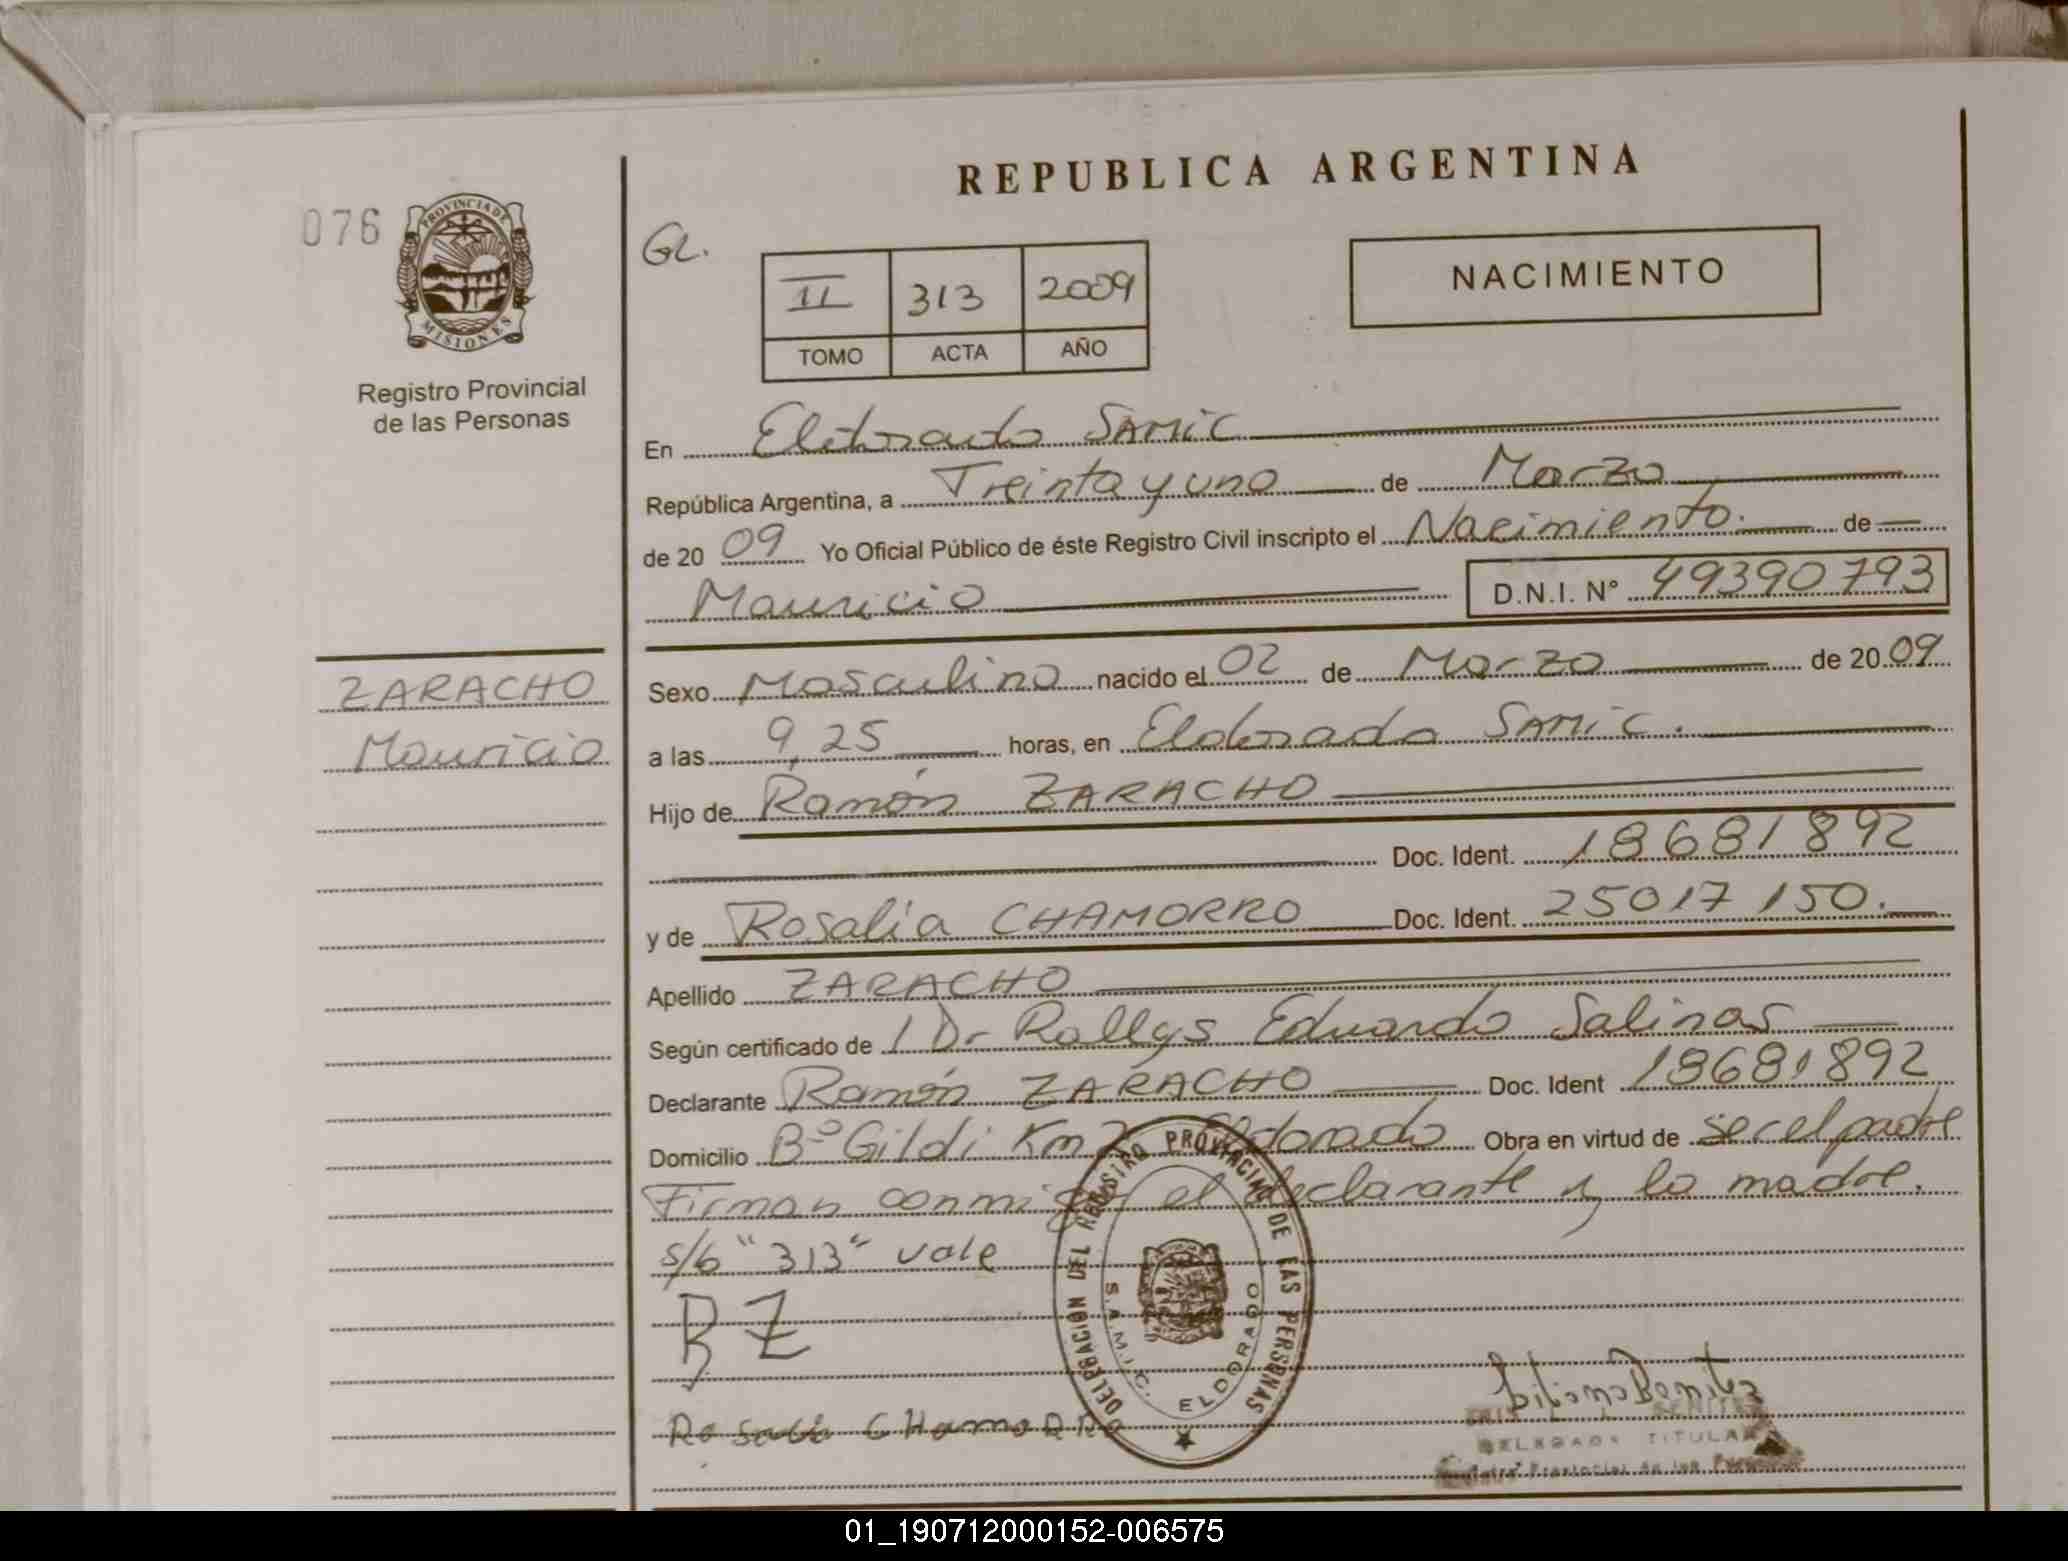 REPUBLICA ARGENTINA
076
PROVINCIA DE
MISIONES
Registro Provincial
de las Personas
GL.
II 313 2009
TOMO ACTA AÑO
NACIMIENTO
En Eldorado SAMIC
República Argentina, a Treinta y uno de Marzo
de 20 09 Yo Oficial Público de éste Registro Civil inscripto el Nacimiento. de
Mauricio D.N.I. N° 49390793
ZARACHO
Mauricio
Sexo Masculino nacido el 02 de Marzo de 20 09
a las 9,25 horas, en Eldorado SAMIC.
Hijo de Ramón ZARACHO
Doc. Ident. 18681892
y de Rosalia CHAMORRO Doc. Ident. 25017150.
Apellido ZARACHO
Según certificado de 1 Dr Rallys Eduardo Salinas
Declarante Ramón ZARACHO Doc. Ident 18681892
Domicilio B° Gildi Km Eldorado Obra en virtud de ser el padre
Firman conmigo el declarante y la madre.
s/b "313" vale
RZ
DELEGACION DEL REGISTRO PROVINCIAL DE LAS PERSONAS
S.A.M.I.C. ELDORADO
Rosali CHamoRRo
Liliana Benitez
BENITEZ
DELEGADA TITULAR
Registro Provincial de las Personas
01_190712000152-006575